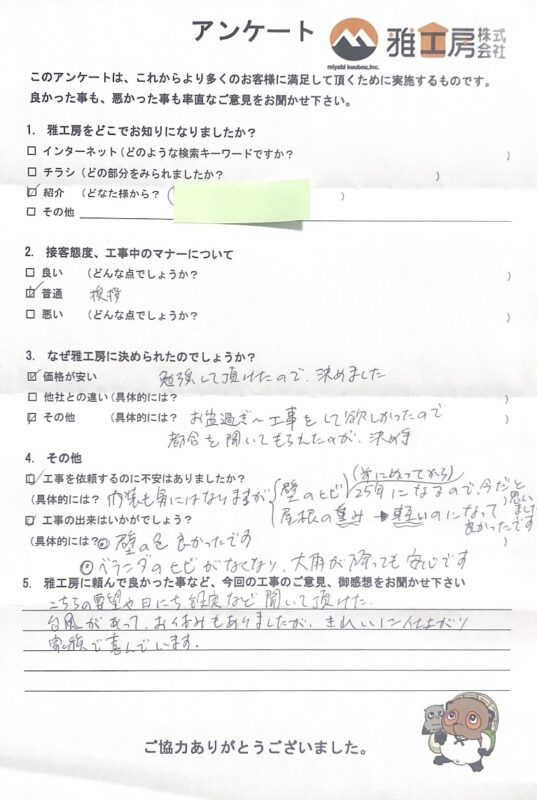 アンケート
雅工房株式会社
miyabi koubou,inc.
このアンケートは、これからより多くのお客様に満足して頂くために実施するものです。
良かった事も、悪かった事も率直なご意見をお聞かせ下さい。
1. 雅工房をどこでお知りになりましたか？
□ インターネット（どのような検索キーワードですか？ ）
□ チラシ（どの部分をみられましたか？ ）
☑ 紹介 （どなた様から？（ ）
□ その他
2. 接客態度、工事中のマナーについて
□ 良い （どんな点でしょうか？ ）
☑ 普通 挨拶
□ 悪い （どんな点でしょうか？ ）
3. なぜ雅工房に決められたのでしょうか？
☑ 価格が安い 勉強して頂けたので、決めました
□ 他社との違い（具体的には？ ）
☑ その他 （具体的には？ お盆過ぎ〜工事をして欲しかったので
都合を聞いてもらえたのが、決め手
4. その他
☑ 工事を依頼するのに不安はありましたか？
（前にぬってから）
（具体的には？ 内装も気にはなりますが 壁のヒビ 25年になるので、今だと思いました
屋根の重み → 軽いのになって良かったです
☑ 工事の出来はいかがでしょう？
（具体的には？ ◎ 壁の色 良かったです ）
◎ ベランダのヒビがなくなり、大雨が降っても安心です
5. 雅工房に頼んで良かった事など、今回の工事のご意見、御感想をお聞かせ下さい
こちらの要望や日にち、設定など聞いて頂けた。
台風があって、お休みもありましたが、きれいに仕上がり
家族で喜んでいます。
ご協力ありがとうございました。